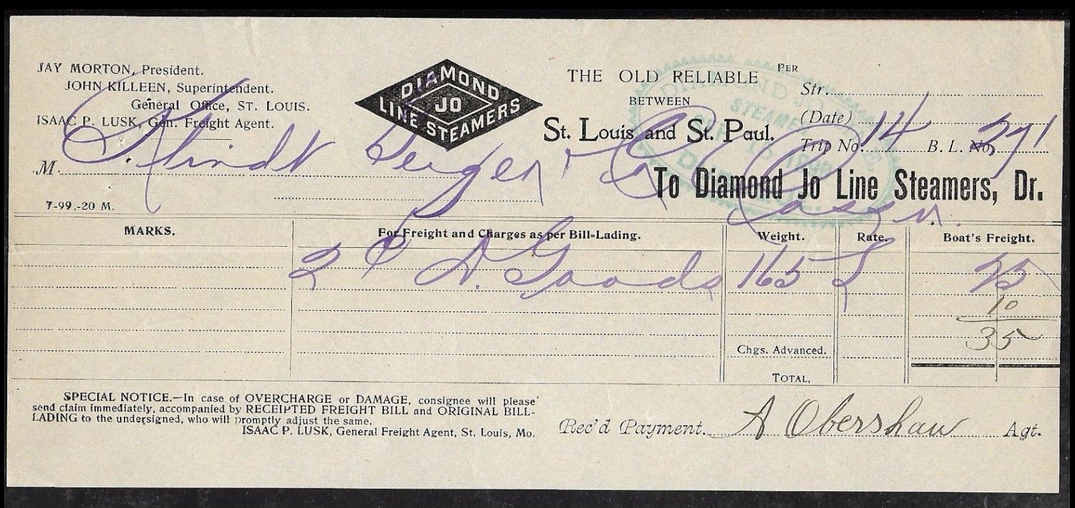 JAY MORTON, President.
JOHN KILLEEN, Superintendent.
General Office, ST. LOUIS.
ISAAC P. LUSK, Gen. Freight Agent.
DIAMOND
JO
LINE STEAMERS
THE OLD RELIABLE
BETWEEN
St. Louis and St. Paul.
PER
Str.
(Date)
Trip No. 14 B. L. No. 271
M
To Diamond Jo Line Steamers, Dr.
7-99.-20 M.
MARKS. For Freight and Charges as per Bill-Lading. Weight. Rate. Boat's Freight.
2 D. Goods 165 25
10
35
Chgs. Advanced.
TOTAL,
SPECIAL NOTICE.—In case of OVERCHARGE or DAMAGE, consignee will please
send claim immediately, accompanied by RECEIPTED FREIGHT BILL and ORIGINAL BILL-
LADING to the undersigned, who will promptly adjust the same.
ISAAC P. LUSK, General Freight Agent, St. Louis, Mo.
Rec'd Payment. A Obershaw Agt.